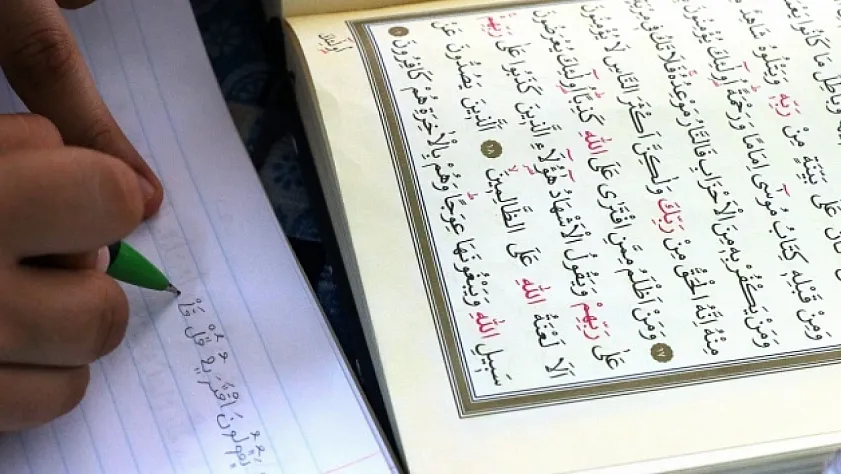 وَبَاطِلٌ مَا كَانُوا
عَلٰى بَيِّنَةٍ مِنْ رَبِّهٖ وَيَتْلُوهُ شَاهِدٌ
وَمِنْ قَبْلِهٖ كِتَابُ مُوسٰٓى اِمَامًا وَرَحْمَةً اُو۬لٰٓئِكَ يُؤْمِنُونَ
وَمَنْ يَكْفُرْ بِهٖ مِنَ الْاَحْزَابِ فَالنَّارُ مَوْعِدُهُ فَلَا تَكُ فٖي مِرْيَةٍ
مِنْهُ اِنَّهُ الْحَقُّ مِنْ رَبِّكَ وَلٰكِنَّ اَكْثَرَ النَّاسِ لَا يُؤْمِنُونَ
١٧ وَمَنْ اَظْلَمُ مِمَّنِ افْتَرٰى عَلَى اللّٰهِ كَذِبًا اُو۬لٰٓئِكَ يُعْرَضُونَ
عَلٰى رَبِّهِمْ وَيَقُولُ الْاَشْهَادُ هٰٓؤُ۬لَٓاءِ الَّذٖينَ كَذَبُوا عَلٰى رَبِّهِمْ
اَلَا لَعْنَةُ اللّٰهِ عَلَى الظَّالِمٖينَ ١٨ اَلَّذٖينَ يَصُدُّونَ عَنْ
سَبٖيلِ اللّٰهِ وَيَبْغُونَهَا عِوَجًا وَهُمْ بِالْاٰخِرَةِ هُمْ كَافِرُونَ
يَقُولُونَ افْتَرٰيهُ قُلْ فَأْ